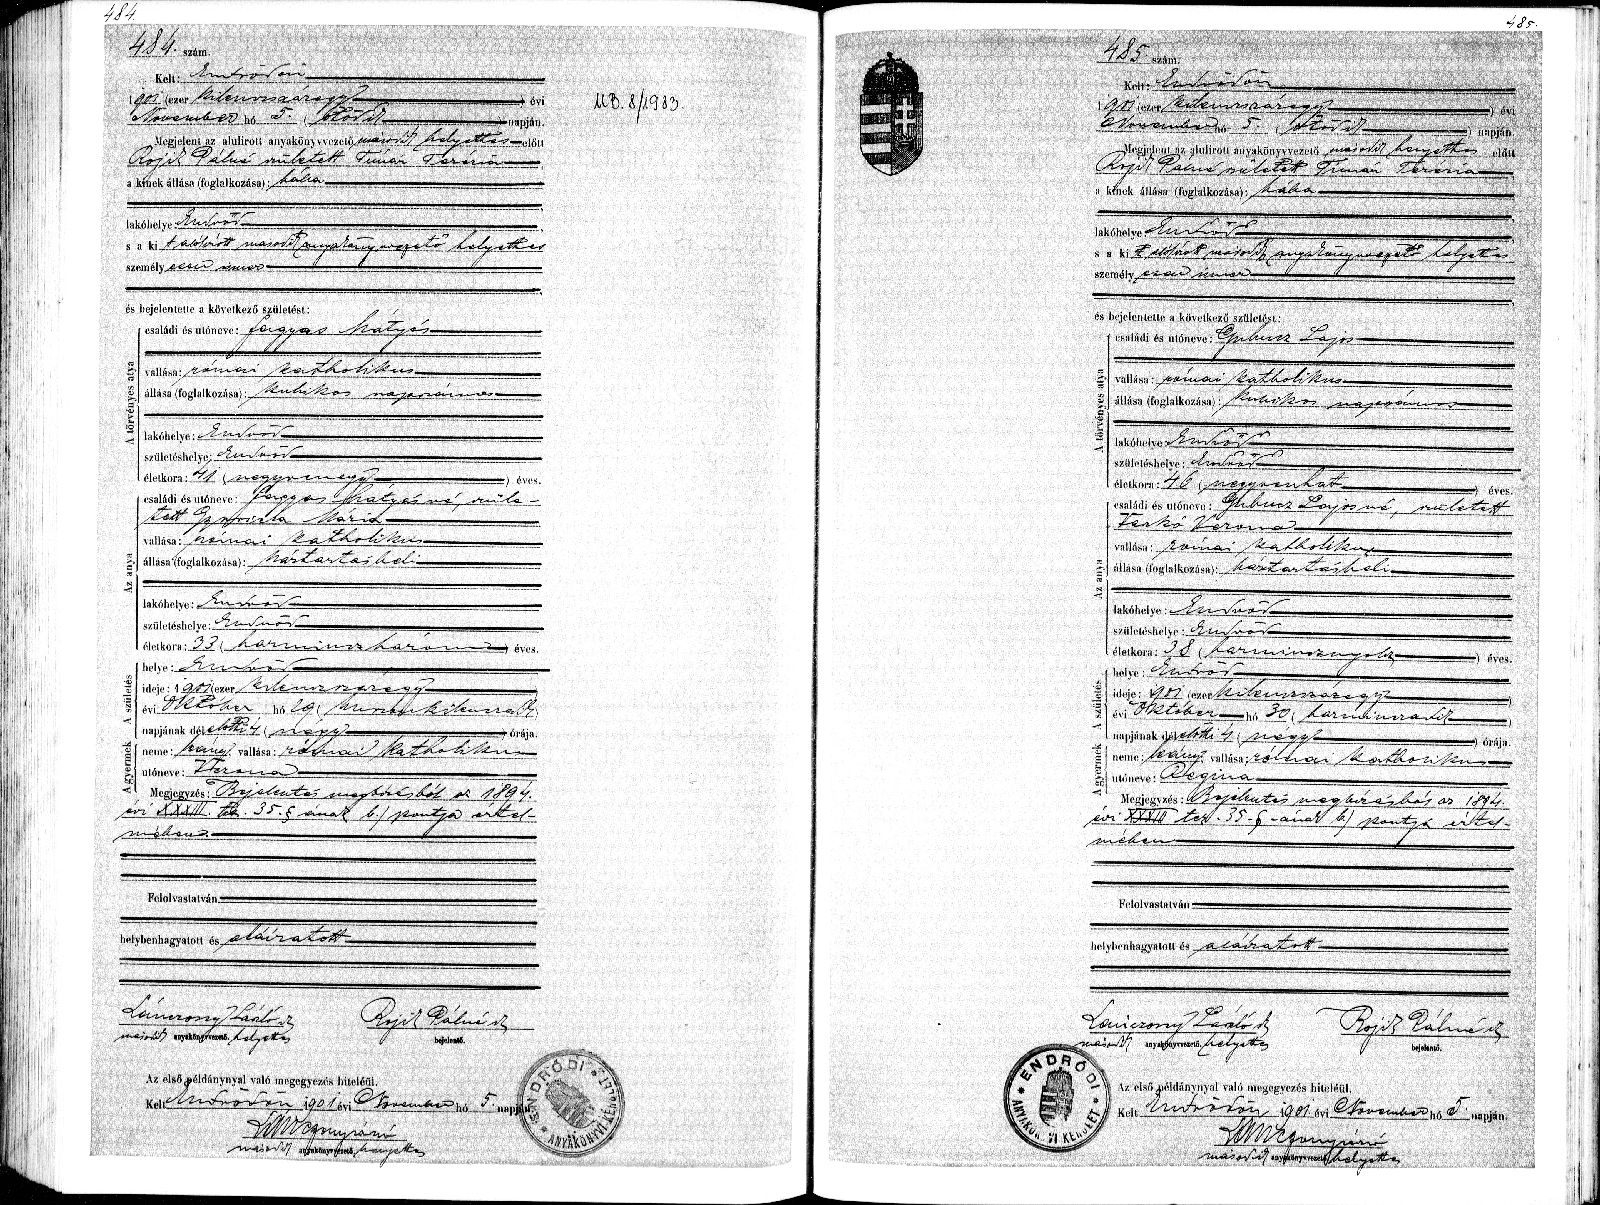 484.
484. szám.
Kelt: Endrődön
1901 (ezer kilenczszázegy) évi
November hó 5. (ötödik) napján.
Megjelent az alulirott anyakönyvvezető másodh. helyettes előtt
Rojik Pálné született Timár Terézia
a kinek állása (foglalkozása): bába
lakóhelye Endrőd
s a ki t alólirott másodh. anyakönyvvezető helyettes
személyesen ismer
és bejelentette a következő születést:
A törvényes atya
családi és utóneve: Fagyas Mátyás
vallása: római katholikus
állása (foglalkozása): kubikos napszámos
lakóhelye: Endrőd
születéshelye: Endrőd
életkora: 41 (negyvenegy) éves.
Az anya
családi és utóneve: Fagyas Mátyásné, szüle-
tett Mária
vallása: római katholikus
állása (foglalkozása): háztartásbeli
lakóhelye: Endrőd
születéshelye: Endrőd
életkora: 33 (harminczhárom) éves.
A születés
helye: Endrőd
ideje: 1901 (ezer kilenczszázegy)
évi Október hó 29 (huszonkilenczedik)
napjának dél előtti 4 (négy) órája.
A gyermek
neme: leány vallása: római katholikus
utóneve: Verona
Megjegyzés: Bejelentés megbízásból az 1894.
évi XXXIII. tcz. 35. §-ának b.) pontja értel-
mében.
Felolvastatván,
helybenhagyatott és aláiratott
Lánczonyi László sk Rojik Pálné sk
másodh. anyakönyvvezető, helyettes bejelentő.
Az első példánynyal való megegyezés hiteléül.
Kelt Endrődön 1901 évi November hó 5 napján
másodh. anyakönyvvezető, helyettes
ENDRŐDI * ANYAKÖNYVI KERÜLET *
MB. 8/1983.
485.
485 szám.
Kelt: Endrődön
1901 (ezer kilenczszázegy) évi
November hó 5. (ötödik) napján
Megjelent az alulirott anyakönyvvezető másodh. helyettes előtt
Rojik Pálné született Timár Terézia
a kinek állása (foglalkozása): bába
lakóhelye Endrőd
s a ki t alólirott másodh. anyakönyvvezető helyettes
személyesen ismer
és bejelentette a következő születést:
A törvényes atya
családi és utóneve: Gubucz Lajos
vallása: római katholikus
állása (foglalkozása): kubikos napszámos
lakóhelye: Endrőd
születéshelye: Endrőd
életkora: 46 (negyvenhat) éves.
Az anya
családi és utóneve: Gubucz Lajosné, született
Varkó Verona
vallása: római katholikus
állása (foglalkozása): háztartásbeli
lakóhelye: Endrőd
születéshelye: Endrőd
életkora: 38 (harmincznyolcz) éves.
A születés
helye: Endrőd
ideje: 1901 (ezer kilenczszázegy)
évi Október hó 30 (harminczadik)
napjának dél előtti 4 (négy) órája.
A gyermek
neme: leány vallása: római katholikus
utóneve: Regina
Megjegyzés: Bejelentés megbízásból az 1894.
évi XXXIII tcz. 35. §-ának b) pontja értel-
mében
Felolvastatván
helybenhagyatott és aláiratott
Lánczonyi László sk Rojik Pálné sk
másodh. anyakönyvvezető, helyettes bejelentő.
Az első példánynyal való megegyezés hiteléül.
Kelt Endrődön 1901 évi November hó 5. napján.
másodh. anyakönyvvezető, helyettes
ENDRŐDI * ANYAKÖNYVI KERÜLET *